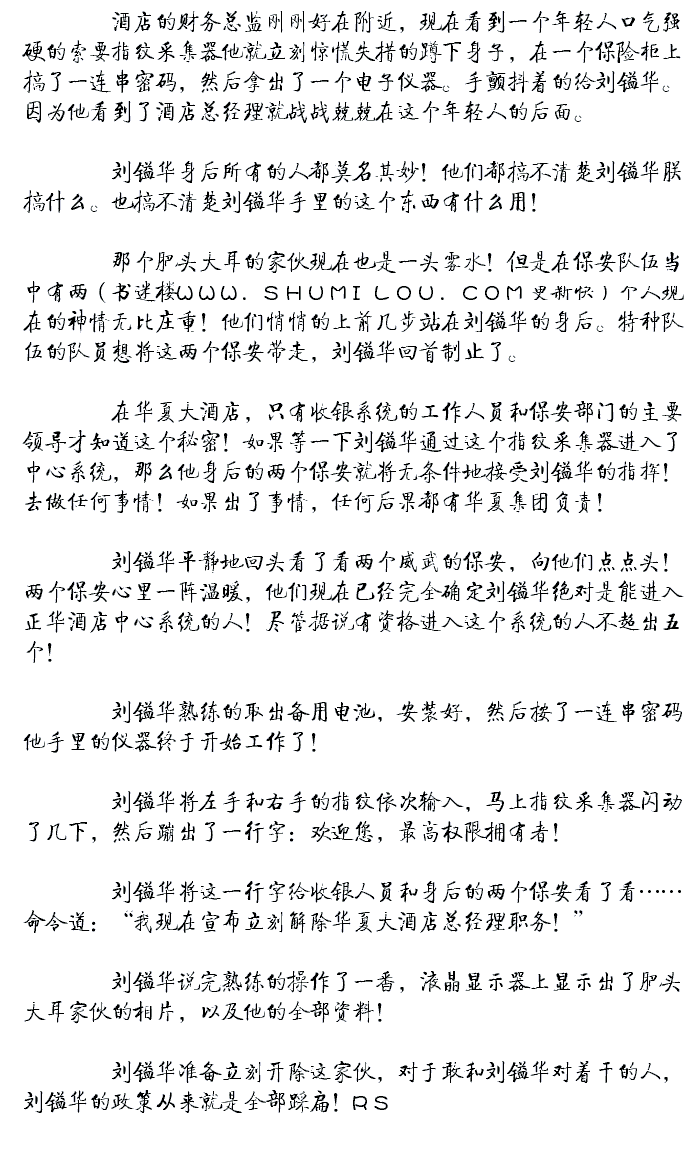 酒店的财务总监刚刚好在附近，现在看到一个年轻人口气强
硬的索要指纹采集器他就立刻惊慌失措的蹲下身子，在一个保险柜上
搞了一连串密码，然后拿出了一个电子仪器。手颤抖着的给刘镒华。
因为他看到了酒店总经理就战战兢兢在这个年轻人的后面。
刘镒华身后所有的人都莫名其妙！他们都搞不清楚刘镒华朕
搞什么。也搞不清楚刘镒华手里的这个东西有什么用！
那个肥头大耳的家伙现在也是一头雾水！但是在保安队伍当
中有两（书迷楼WWW．SHUMILOU．COM更新快）个人现
在的神情无比庄重！他们悄悄的上前几步站在刘镒华的身后。特种队
伍的队员想将这两个保安带走，刘镒华回首制止了。
在华夏大酒店，只有收银系统的工作人员和保安部门的主要
领导才知道这个秘密！如果等一下刘镒华通过这个指纹采集器进入了
中心系统，那么他身后的两个保安就将无条件地接受刘镒华的指挥！
去做任何事情！如果出了事情，任何后果都有华夏集团负责！
刘镒华平静地回头看了看两个威武的保安，向他们点点头！
两个保安心里一阵温暖，他们现在已经完全确定刘镒华绝对是能进入
正华酒店中心系统的人！尽管据说有资格进入这个系统的人不超出五
个！
刘镒华熟练的取出备用电池，安装好，然后按了一连串密码
他手里的仪器终于开始工作了！
刘镒华将左手和右手的指纹依次输入，马上指纹采集器闪动
了几下，然后蹦出了一行字：欢迎您，最高权限拥有者！
刘镒华将这一行字给收银人员和身后的两个保安看了看……
命令道：“我现在宣布立刻解除华夏大酒店总经理职务！”
刘镒华说完熟练的操作了一番，液晶显示器上显示出了肥头
大耳家伙的相片，以及他的全部资料！
刘镒华准备立刻开除这家伙，对于敢和刘镒华对着干的人，
刘镒华的政策从来就是全部踩扁！RS